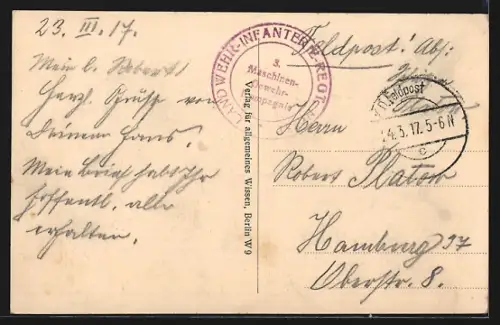 23. III. 17.
Mein l. Robert!
Herzl. Grüsse von
Deinem Hans.
Mein Brief habt Ihr
hoffentl. alle
erhalten.
LANDWEHR-INFANTERIE-REGT.
3.
Maschinen-
Gewehr-
Kompagnie
Verlag für allgemeines Wissen, Berlin W 9
Feldpost! Abs:
Feldpost
24.3.17.5-6N
c
Herrn
Robert Platow
Hamburg 37
Oberstr. 8.